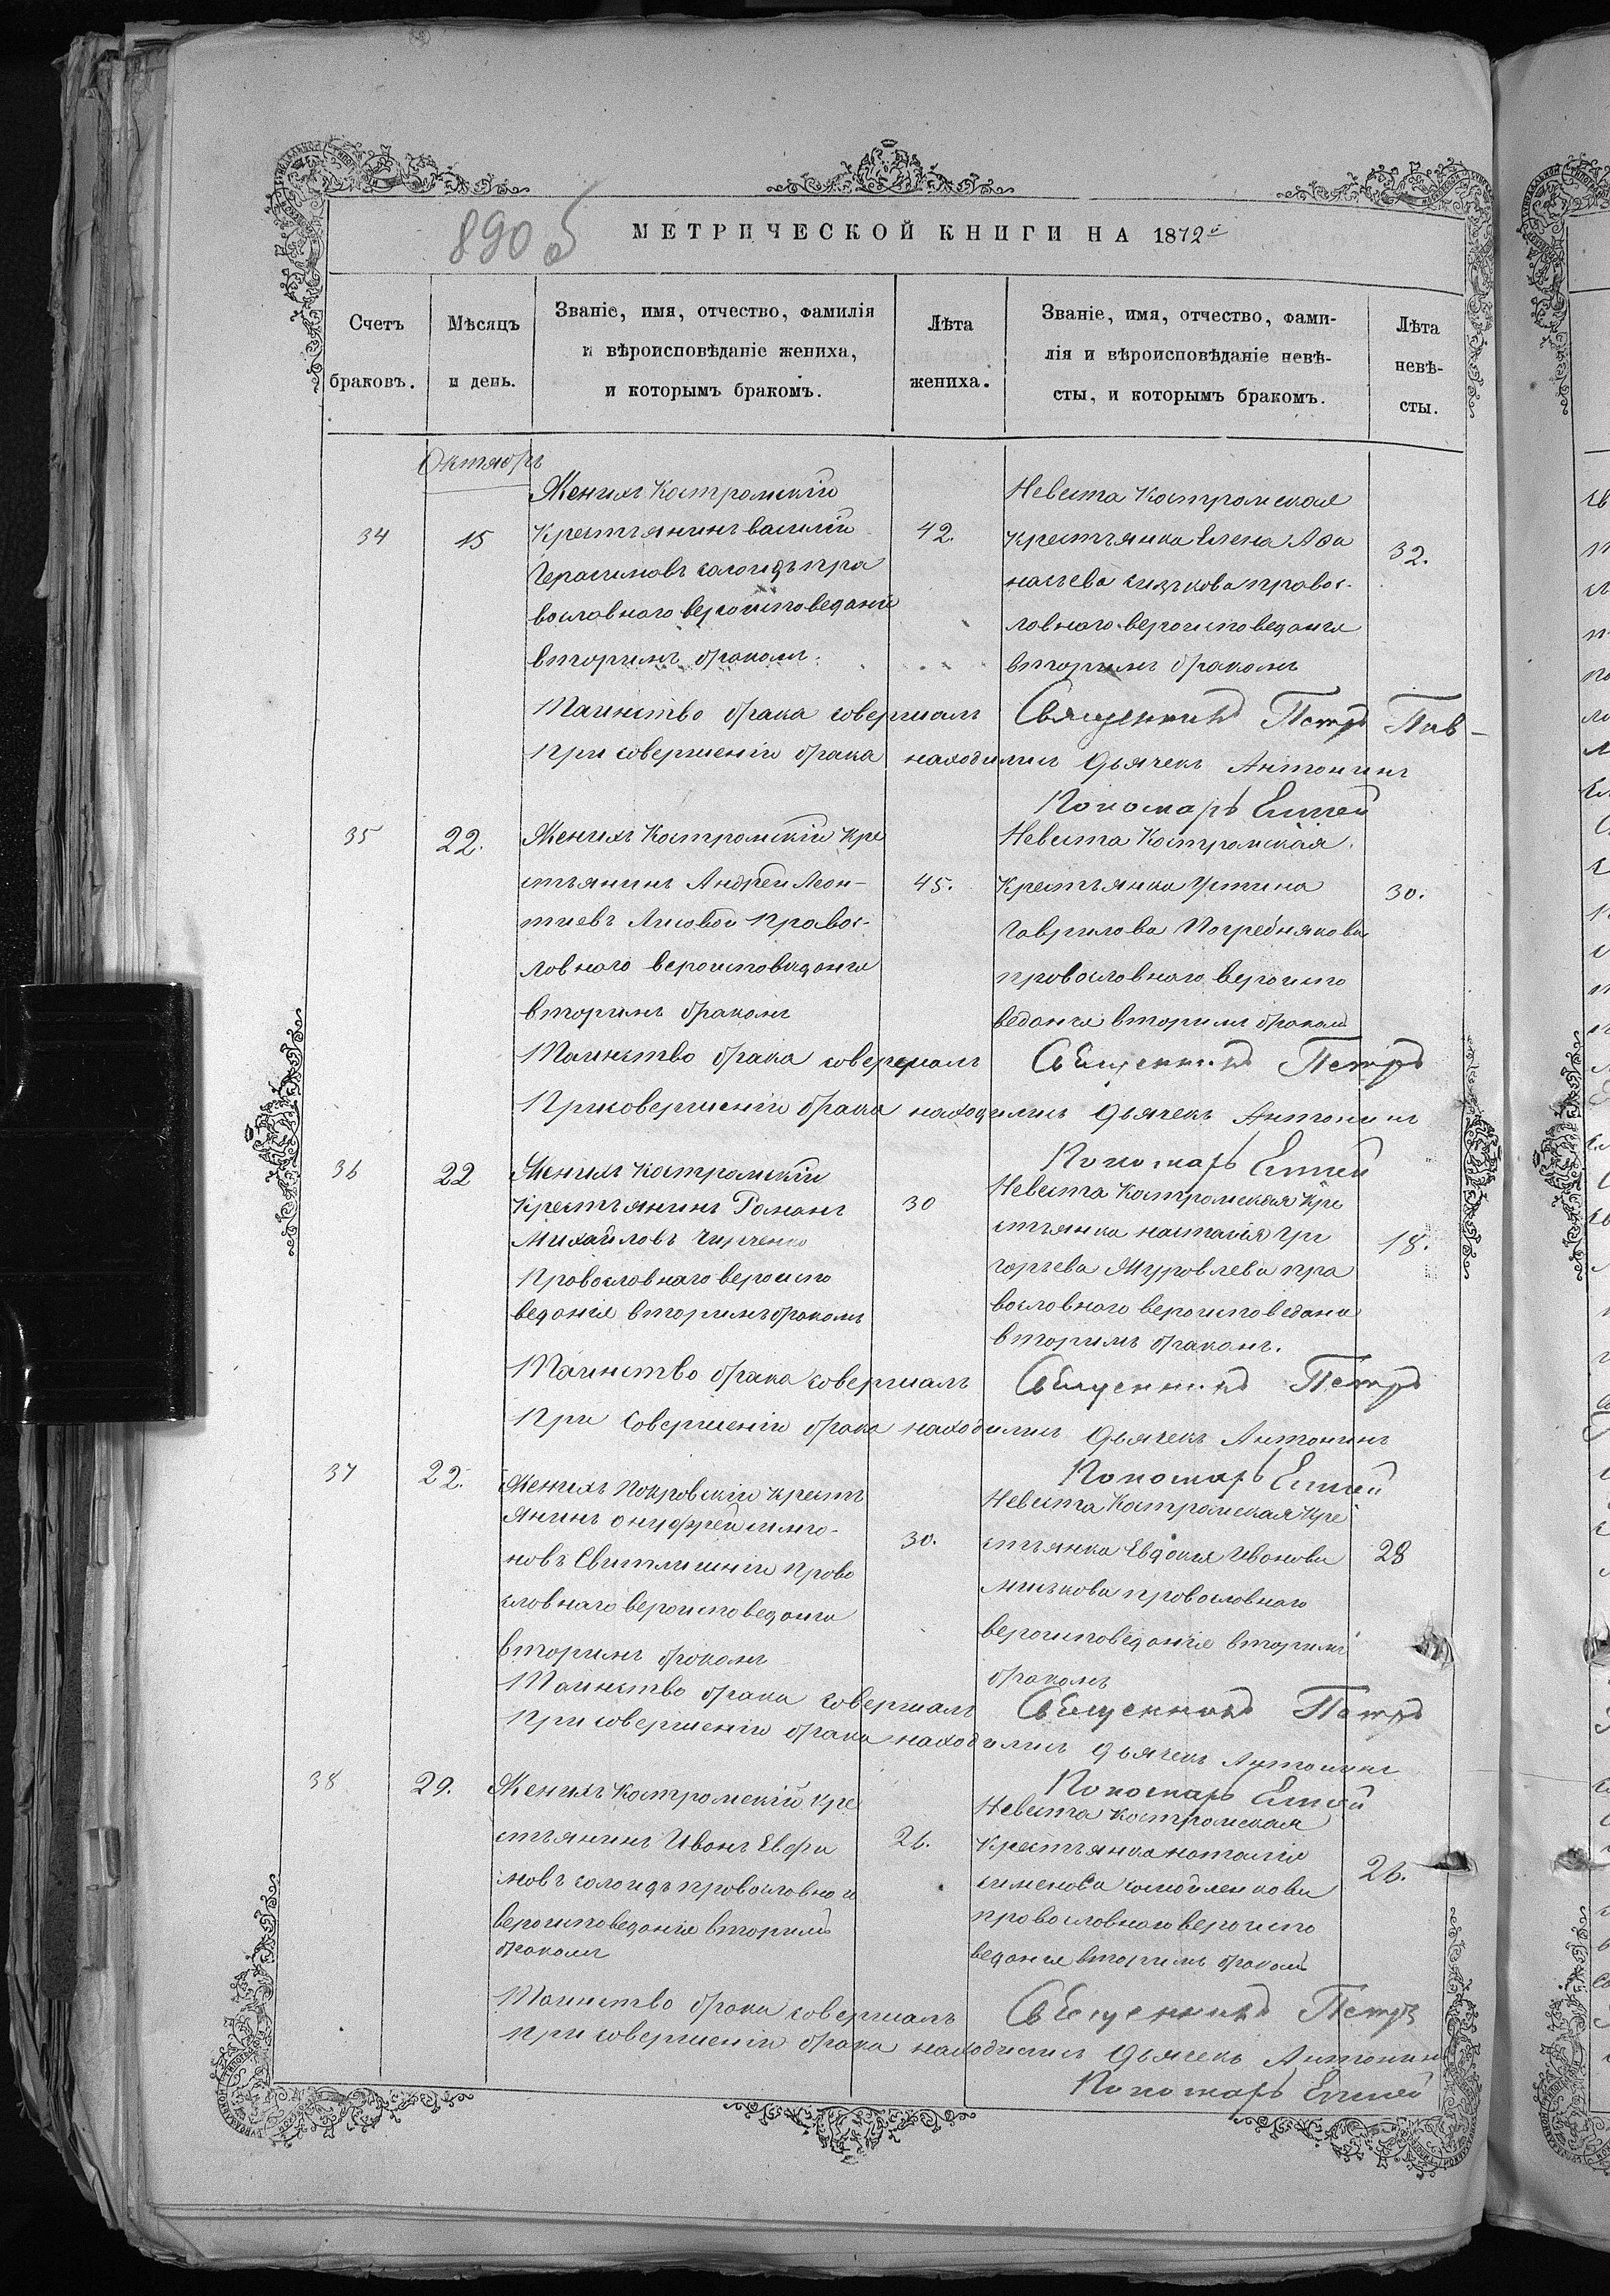 890 об
МЕТРИЧЕСКОЙ КНИГИ НА 1872й
Счетъ браковъ.
Мѣсяцъ и день.
Званіе, имя, отчество, фамилія
и вѣроисповѣданіе жениха,
и которымъ бракомъ.
Лѣта
жениха.
Званіе, имя, отчество, фами-
лія и вѣроисповѣданіе невѣ-
сты, и которымъ бракомъ.
Лѣта
невѣ-
сты.
Октябрь
34
15
Женихъ Костромскій
Крестьянинъ василій
Герасимовъ солоидъ пра
вославного вероисповеданія
вторимъ бракомъ
42.
Невеста Костромская
крестьянка Елена Афа
насьева правос-
лавного вероисповеданія
вторимъ бракомъ
32.
Таинство брака совершалъ Священникъ Петръ Пав-
при совершеніи брака находились Дьячекъ Антонинъ
Пономарь Елисей
35
22.
Женихъ Костромскій кре
стьянинъ Андрей Леон-
тиевъ Лисовой Правос-
лавного вероисповеданія
вторимъ бракомъ
45.
Невеста Костромская
Крестьянка Устина
Гаврилова Погребнякова
провославного вероиспо
веданія вторимъ бракомъ
30.
Таинство брака совершалъ Священникъ Петръ
При совершеніи брака находились Дьячекъ Антонинъ
Пономарь Елисей
36
22
Женихъ Костромскій
Крестьянинъ Романъ
Михайловъ
Провославного вероиспо
веданія вторимъ бракомъ
30
Невеста Костромская Кре
стьянка настасія Гри
горьева Журовлева пра
вославного вероисповедания
вторимъ бракомъ.
18.
Таинство брака совершалъ Священникъ Петръ
При совершеніи брака находились Дьячекъ Антонинъ
Пономарь Елисей
37
22.
Женихъ Покровскій крестъ
янинъ онуфрей симо-
новъ Провo
славного вероисповеданія
вторимъ бракомъ
30.
Невеста Костромская Кре
стьянка Евдокия Иванова
провославного
вероисповеданія вторимъ
бракомъ
28
Таинство брака совершалъ Священникъ Петръ
При совершеніи брака находились Дьячекъ Антонинъ
Пономарь Елисей
38
29.
Женихъ Костромскій кре
стьянинъ Иванъ Евфи
мовъ солоидъ провославного
вероисповеданія вторимъ
бракомъ
26.
Невеста Костромская
Крестьянка наталія
сименова
провославного вероиспо
веданія вторимъ бракомъ
26.
Таинство брака совершалъ Священникъ Петръ
при совершеніи брака находились Дьячекъ Антонинъ
Пономарь Елисей